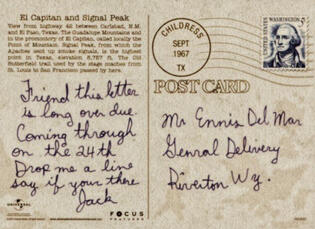 El Capitan and Signal Peak
View from highway 62 between Carlsbad, N.M.
and El Paso, Texas. The Guadalupe Mountains and
in the promontory of El Capitan, called locally the
Point of Mountain. Signal Peak, from which the
Apaches used up smoke signals, is the highest
point in Texas, elevation 8,757 ft. The Old
Butterfield trail used by the stage coaches from
St. Louis to San Francisco passed by here.
Friend this letter
is long over due.
Coming through
on the 24th
Drop me a line
say if your there
Jack
CHILDRESS
SEPT
1967
TX
UNITED STATES
POST CARD
Mr Ennis Del Mar
Genral Delivery
Riverton Wy.
UNIVERSAL
FOCUS
FEATURES